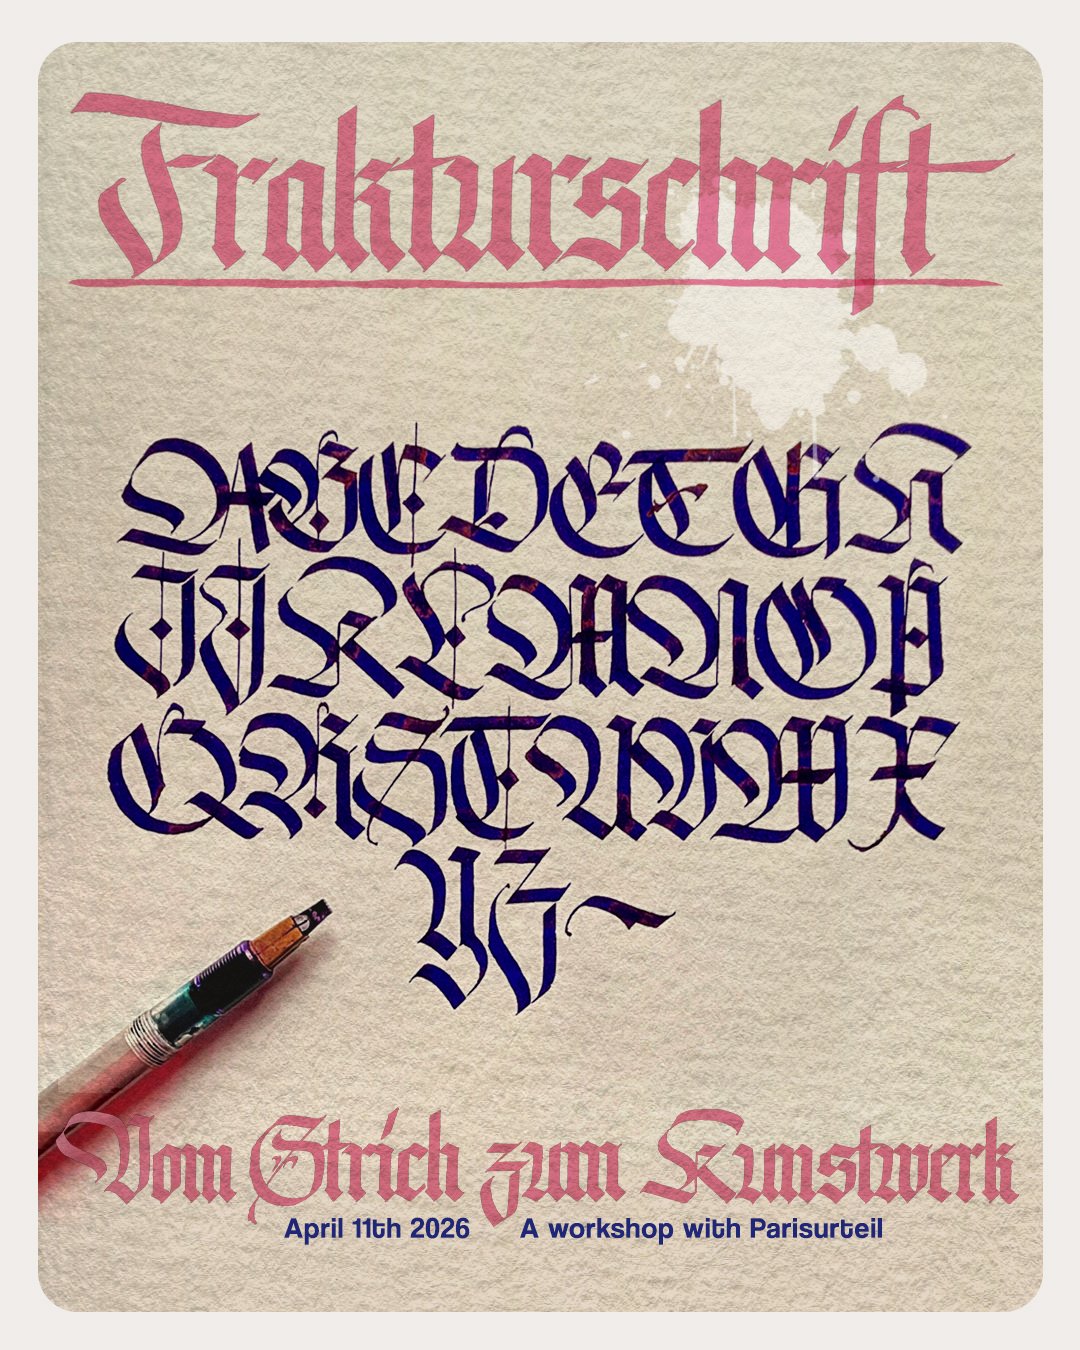 Frakturschrift
ABCDEFGH
IJKLMNOP
QRSTUVWX
YZ~
Vom Strich zum Kunstwerk
April 11th 2026 A workshop with Parisurteil